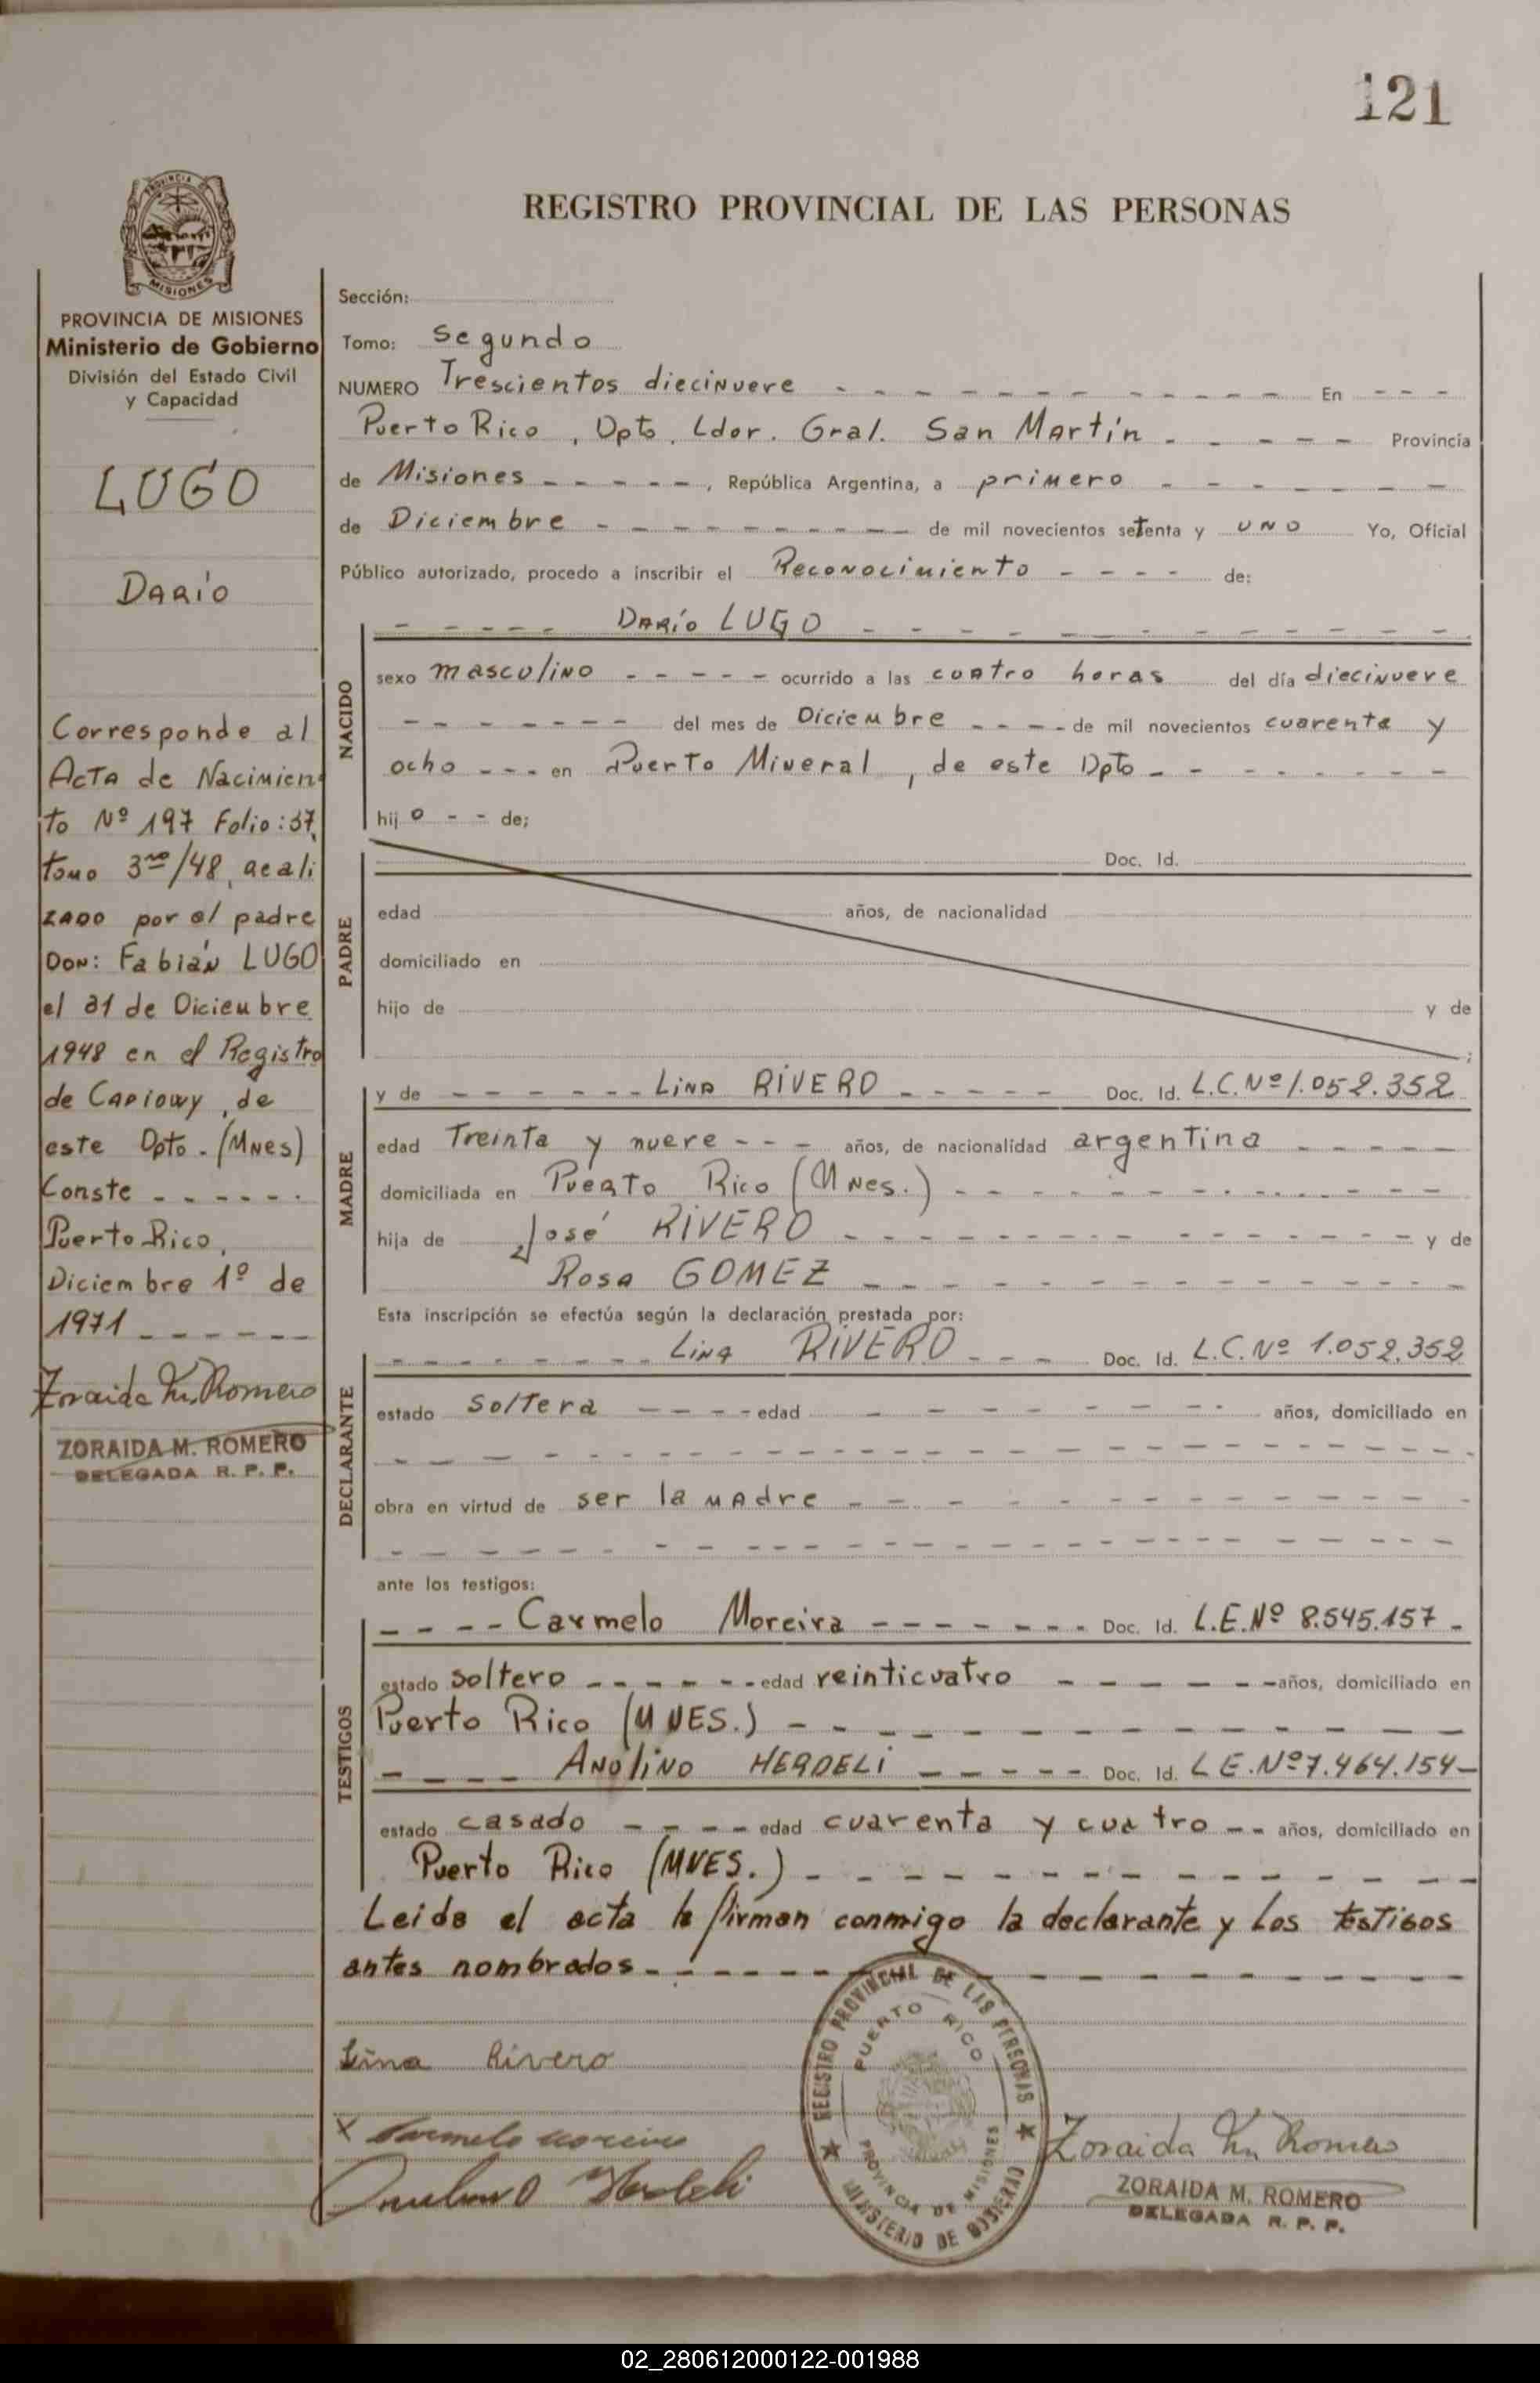 121
PROVINCIA DE
MISIONES
REGISTRO PROVINCIAL DE LAS PERSONAS
PROVINCIA DE MISIONES
Ministerio de Gobierno
División del Estado Civil
y Capacidad
LUGO
DARÍO
Corresponde al
ACTA de Nacimien
to Nº 197 Folio: 37,
tomo 3ro/48, reali
zado por el padre
DON: Fabián LUGO
el 21 de Diciembre
1948 en el Registro
de Capiovy, de
este Dpto. (MNes)
Conste - - - - - -
Puerto Rico,
Diciembre 1º de
1971 - - - - - -
Zoraida M. Romero
ZORAIDA M. ROMERO
DELEGADA R. P. P.
Sección:
Tomo: Segundo
NUMERO Trescientos diecinueve - - - - - - - - - - - En - - -
Puerto Rico, Dpto. Ldor. Gral. San Martín - - - - - Provincia
de Misiones - - - - - -, República Argentina, a primero - - - - - - -
de Diciembre - - - - - - - - - de mil novecientos setenta y uno Yo, Oficial
Público autorizado, procedo a inscribir el Reconocimiento - - - - de:
NACIDO
- - - - - DARÍO LUGO - - - - - - - - - - - - -
sexo masculino - - - - - ocurrido a las cuatro horas del día diecinueve
- - - - - - - del mes de Diciembre - - - - de mil novecientos cuarenta y
ocho - - - en Puerto Mineral, de este Dpto - - - - - - - -
hijo - - de;
PADRE
Doc. Id.
edad años, de nacionalidad
domiciliado en
hijo de y de
;
MADRE
y de - - - - - - - LINA RIVERO - - - - - Doc. Id. L.C.Nº 1.052.352
edad Treinta y nueve - - - años, de nacionalidad argentina - - - - -
domiciliada en Puerto Rico (Mnes.) - - - - - - - - - - - -
hija de José RIVERO - - - - - - - - - - - - - y de
Rosa GOMEZ - - - - - - - - - - - - - -
Esta inscripción se efectúa según la declaración prestada por:
DECLARANTE
- - - - - - - - Lina RIVERO - - - Doc. Id. L.C.Nº 1.052.352
estado Soltera - - - - edad - - - - - - - - años, domiciliado en
- - - - - - - - - - - - - - - - - - - - - - - -
obra en virtud de ser la madre - - - - - - - - - - - - - -
- - - - - - - - - - - - - - - - - - - - - - - -
ante los testigos:
TESTIGOS
- - - - Carmelo Moreira - - - - - - - Doc. Id. L.E.Nº 8.545.157 -
estado soltero - - - - - - edad veinticuatro - - - - - - años, domiciliado en
Puerto Rico (MNES.) - - - - - - - - - - - - - - -
- - - - ANOLINO HERDELI - - - - - Doc. Id. L E.Nº 7.464.154 -
estado casado - - - - edad cuarenta y cuatro - - años, domiciliado en
Puerto Rico (MNES.) - - - - - - - - - - - - - -
Leida el acta la firman conmigo la declarante y los testigos
antes nombrados - - - - - - - - - - - - - - - -
Lina Rivero
x Carmelo Moreira
REGISTRO PROVINCIAL DE LAS PERSONAS
PUERTO RICO
PROVINCIA DE MISIONES
MINISTERIO DE GOBIERNO
Zoraida M. Romero
ZORAIDA M. ROMERO
DELEGADA R. P. P.
02_280612000122-001988